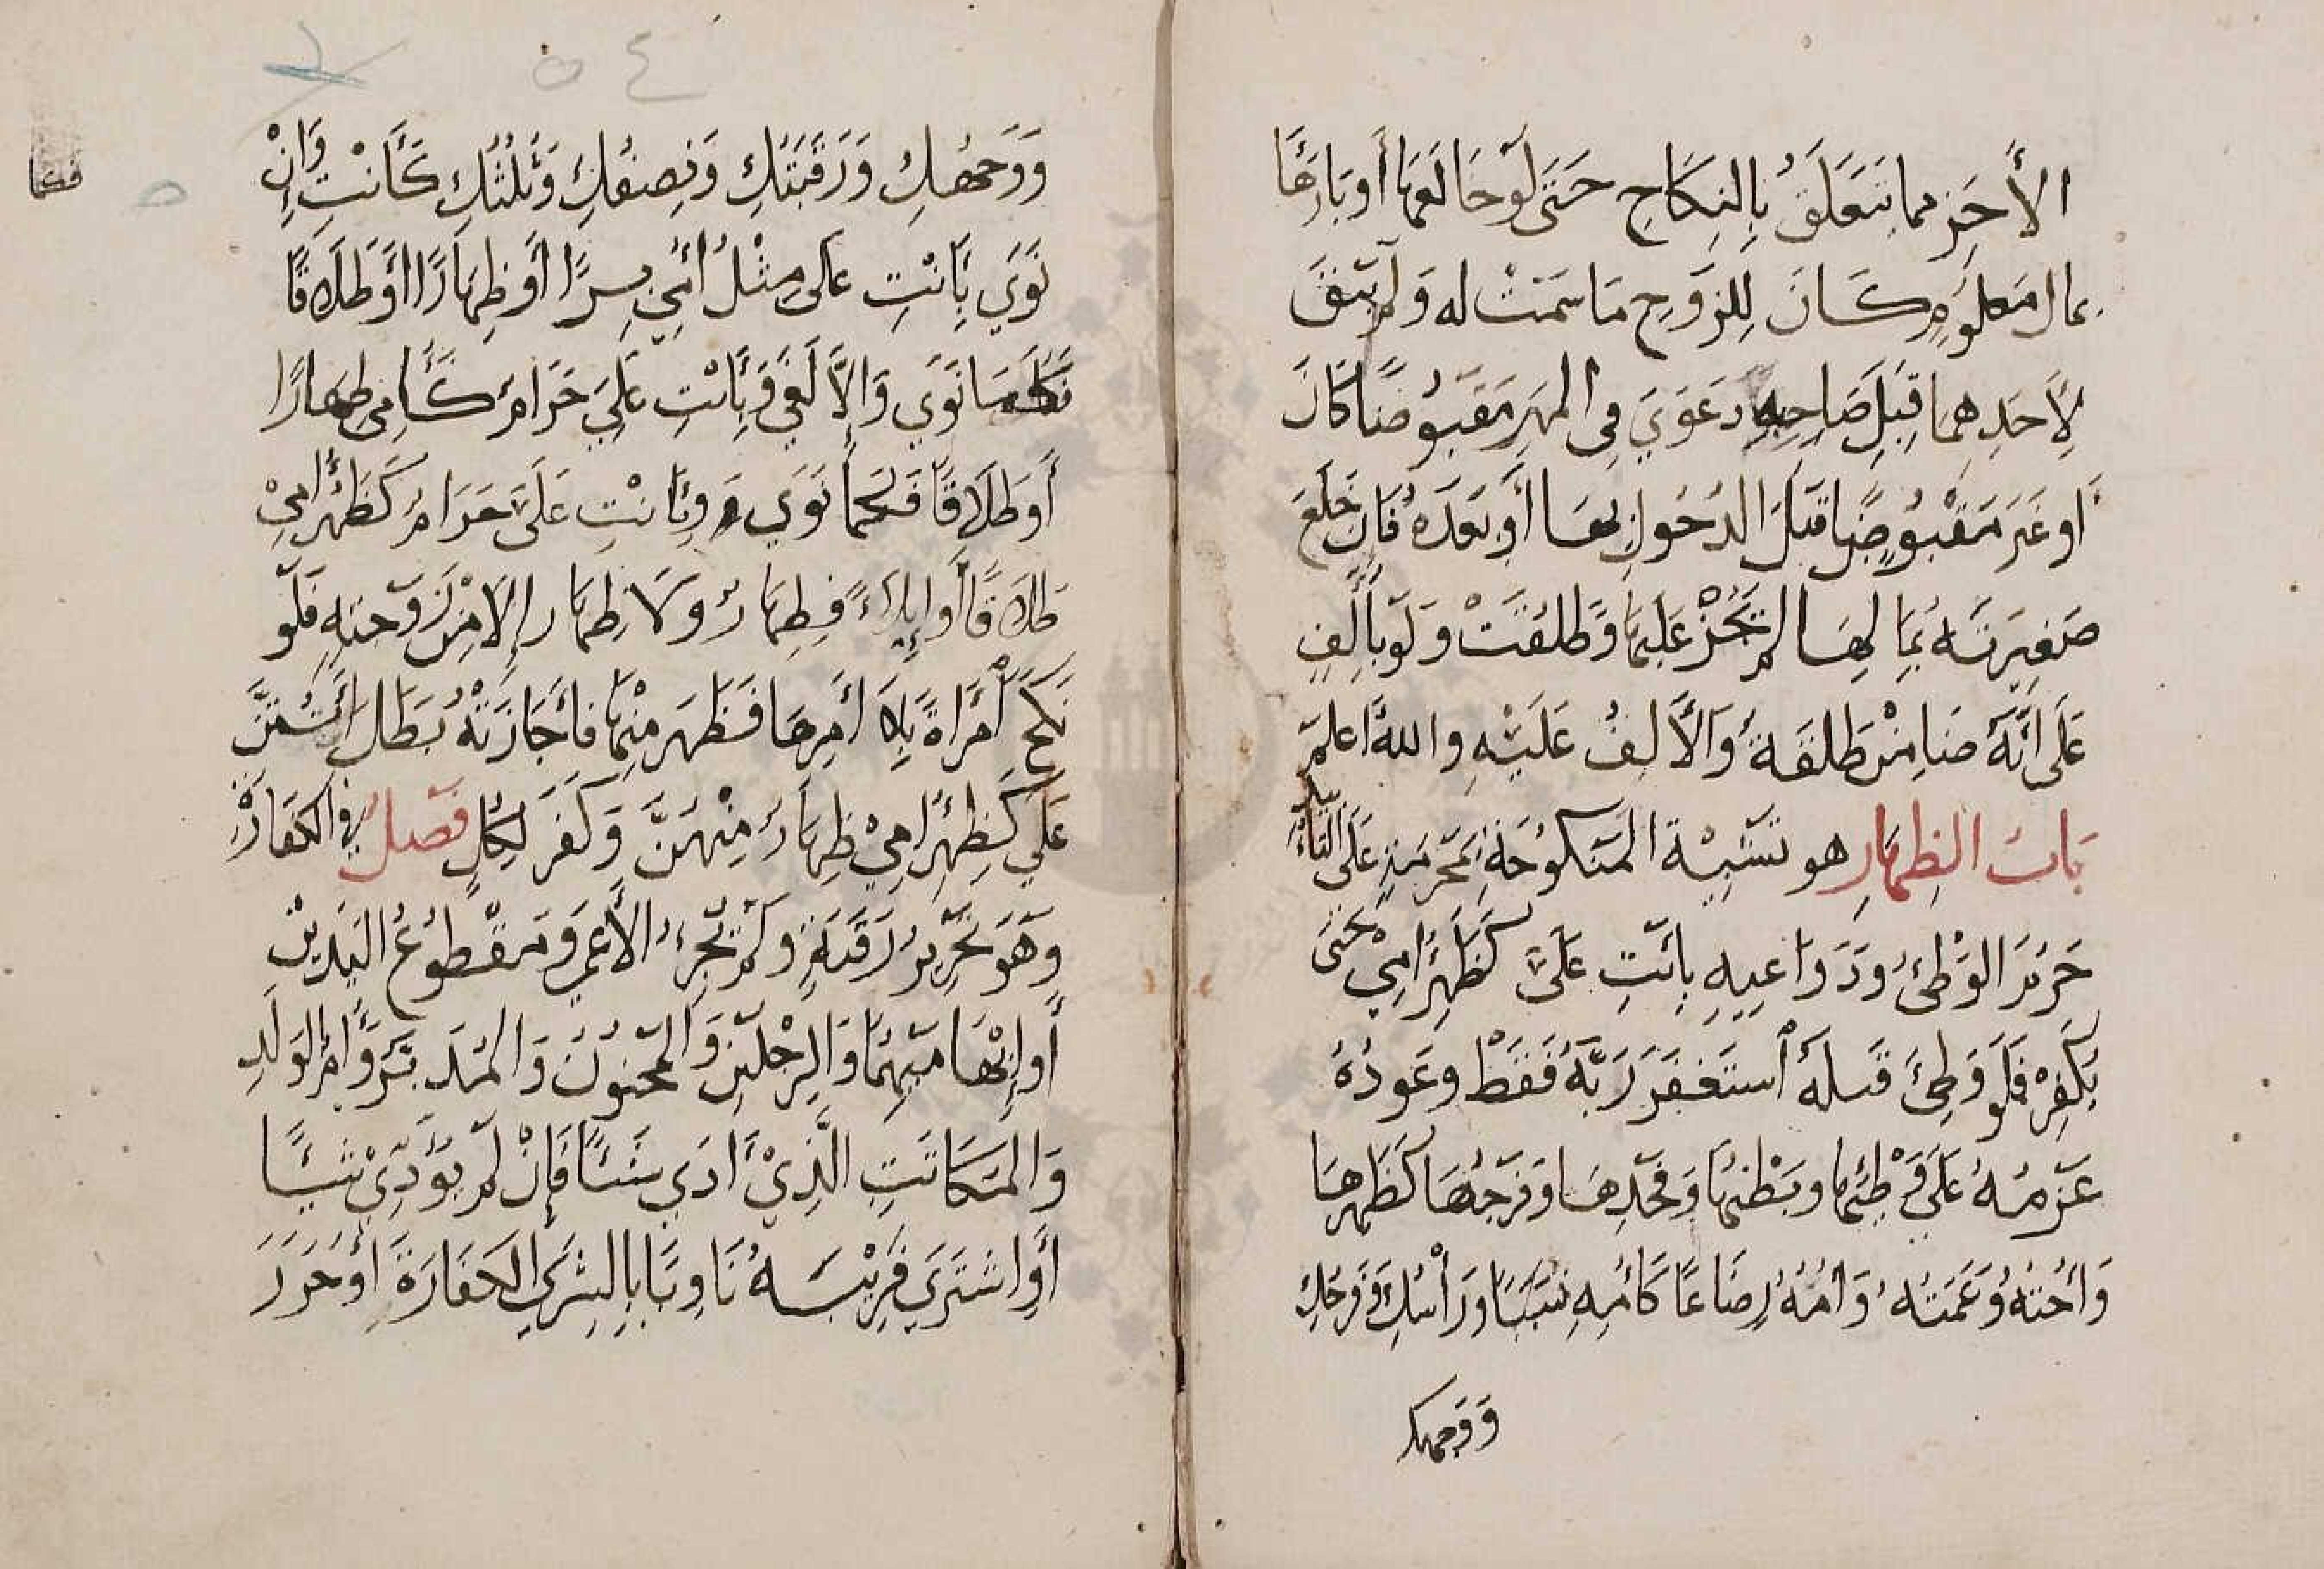 الأَخَرِ مما يتَعَلَقُ بِالنِكَاحِ حَتَى لَوْ خَالَعَهَا أَو بَارَهَا
بمال مَعلُومٍ كَانَ لِلزَوجِ مَا سَمَتْ له وَلَمْ يَبْقَ
لِأَحَدِهِمَا قِبَلَ صَاحِبِهِ دَعَوَي فِي المهَرِ مَقبُوضًا كَانَ
أَو غَيرَ مَقْبُوضٍ قبَلَ الدُخُولِ بهَا أَو بَعدَهُ فَإن خَلَعَ
صَغِيرَتَهُ بمَالِهَا لم تَجُزْ عَلَيهَا وَطلُقَتْ وَلَو بِألفٍ
عَلَى أنَّهُ ضَامِنْ طَلقَةٌ وَالأَلفُ عَلَيْهِ والله اعلم
بَابُ الظِهَارِ هو تَشْبِيْهُ المَنكُوحَةِ بمَحْرَمَةٍ عَلَى التابيد
حَرُمَ الوَطْئُ وَدَوَاعِيهِ بِأنتِ عَلَىَّ كَظَهْرِ أُمِيْ حَتى
يُكَفِرْ فَلَو وَطِئَ قَبلَهُ أستَغفَرَ رَبَّهُ فَقَطْ وعَودُهُ
عَزمُهُ عَلَي وَطْئِهَا وبَطْنُهَا وَفَخَذِهَا وَفَرجُهَا كَظَهرِهَا
وَأُختُهُ وَعَمَتُهُ وَأُمُهُ رِضَاعًا كَأُمِهِ نَسَبًا وَرَأْسُكِ وَفَرجُكِ
وَوَجهك
٥٤
وَوَجهُكِ وَرَقَبَتُكِ وَنِصفُكِ وَثُلُثُكِ كَأَنتِ وَإنْ
نَوَي بِأَنْتِ عَلى مِثْلُ أُمِي بِرًا أَو ظِهَارًا أَو طَلَاقًا
فَكَمَا نَوَي وَإلاَّ لَغَي وَبِأَنْتِ عَلَيَ حَرَامٌ كَأُمِي ظِهَارًا
أَو طَلَاقًا فَكَمَا نَوَي وَبِأَنْتِ عَلَىَ حَرَامٌ كَظَهْرِ أُمِيْ
طَلَاقًا أَو إيلَاءً فَظِهَارٌ وَلَا ظِهَارَ إلَا مِنْ زَوجَتِهِ فَلَو
نَكَحَ أمْرَاةً بِلَا أَمرِهَا فَظَهَرَ مِنْهَا فَأجَازَتْهُ بَطَلَ أَنتُنَّ
عَلَي كَظَهرِ أُمِيْ ظِهَارٌ مِنْهُنَّ وَكَفَرَ لِكُلٍ فَصلٌ في الكفَارَةِ
وَهُوَ تَحْرِيرُ رَقَبَةٍ وَلَمْ تَجُزْ الأَعمَي وَمَقْطُوعُ اليَدَيْنِ
أَو إِبْهَامَيهِمَا وَالرِجْلَينِ وَالمَجنُونُ وَالمُدَبَّرُ وَأُمُ الوَلَدِ
وَالمُكَاتَبِ الَّذِيْ أَدَي شَيئًا فَإِنْ لَمْ يُؤَدِي شَيئًا
أَو اشتَرَي قَرِيْبَهُ نَاوِيًا بِالشِرَي الكَفَارَةَ أَو حَرَرَ